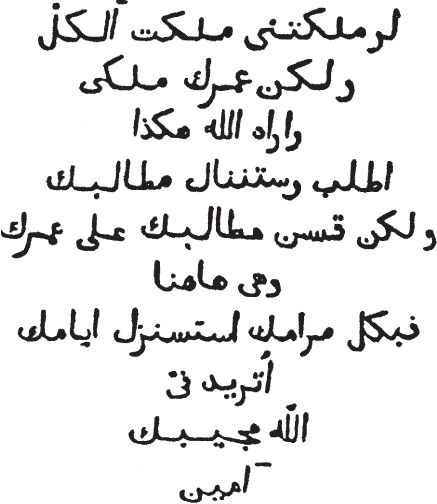 لو ملكتني ملكت الكلّ
ولكن عمرك ملكي
واراه الله هكذا
اطلب وستنال مطالبك
ولكن قسن مطالبك على عمرك
وهى هاهنا
فبكل مرامك استسنزل ايامك
أتريد فىّ
اللّه مجيبك
آمين